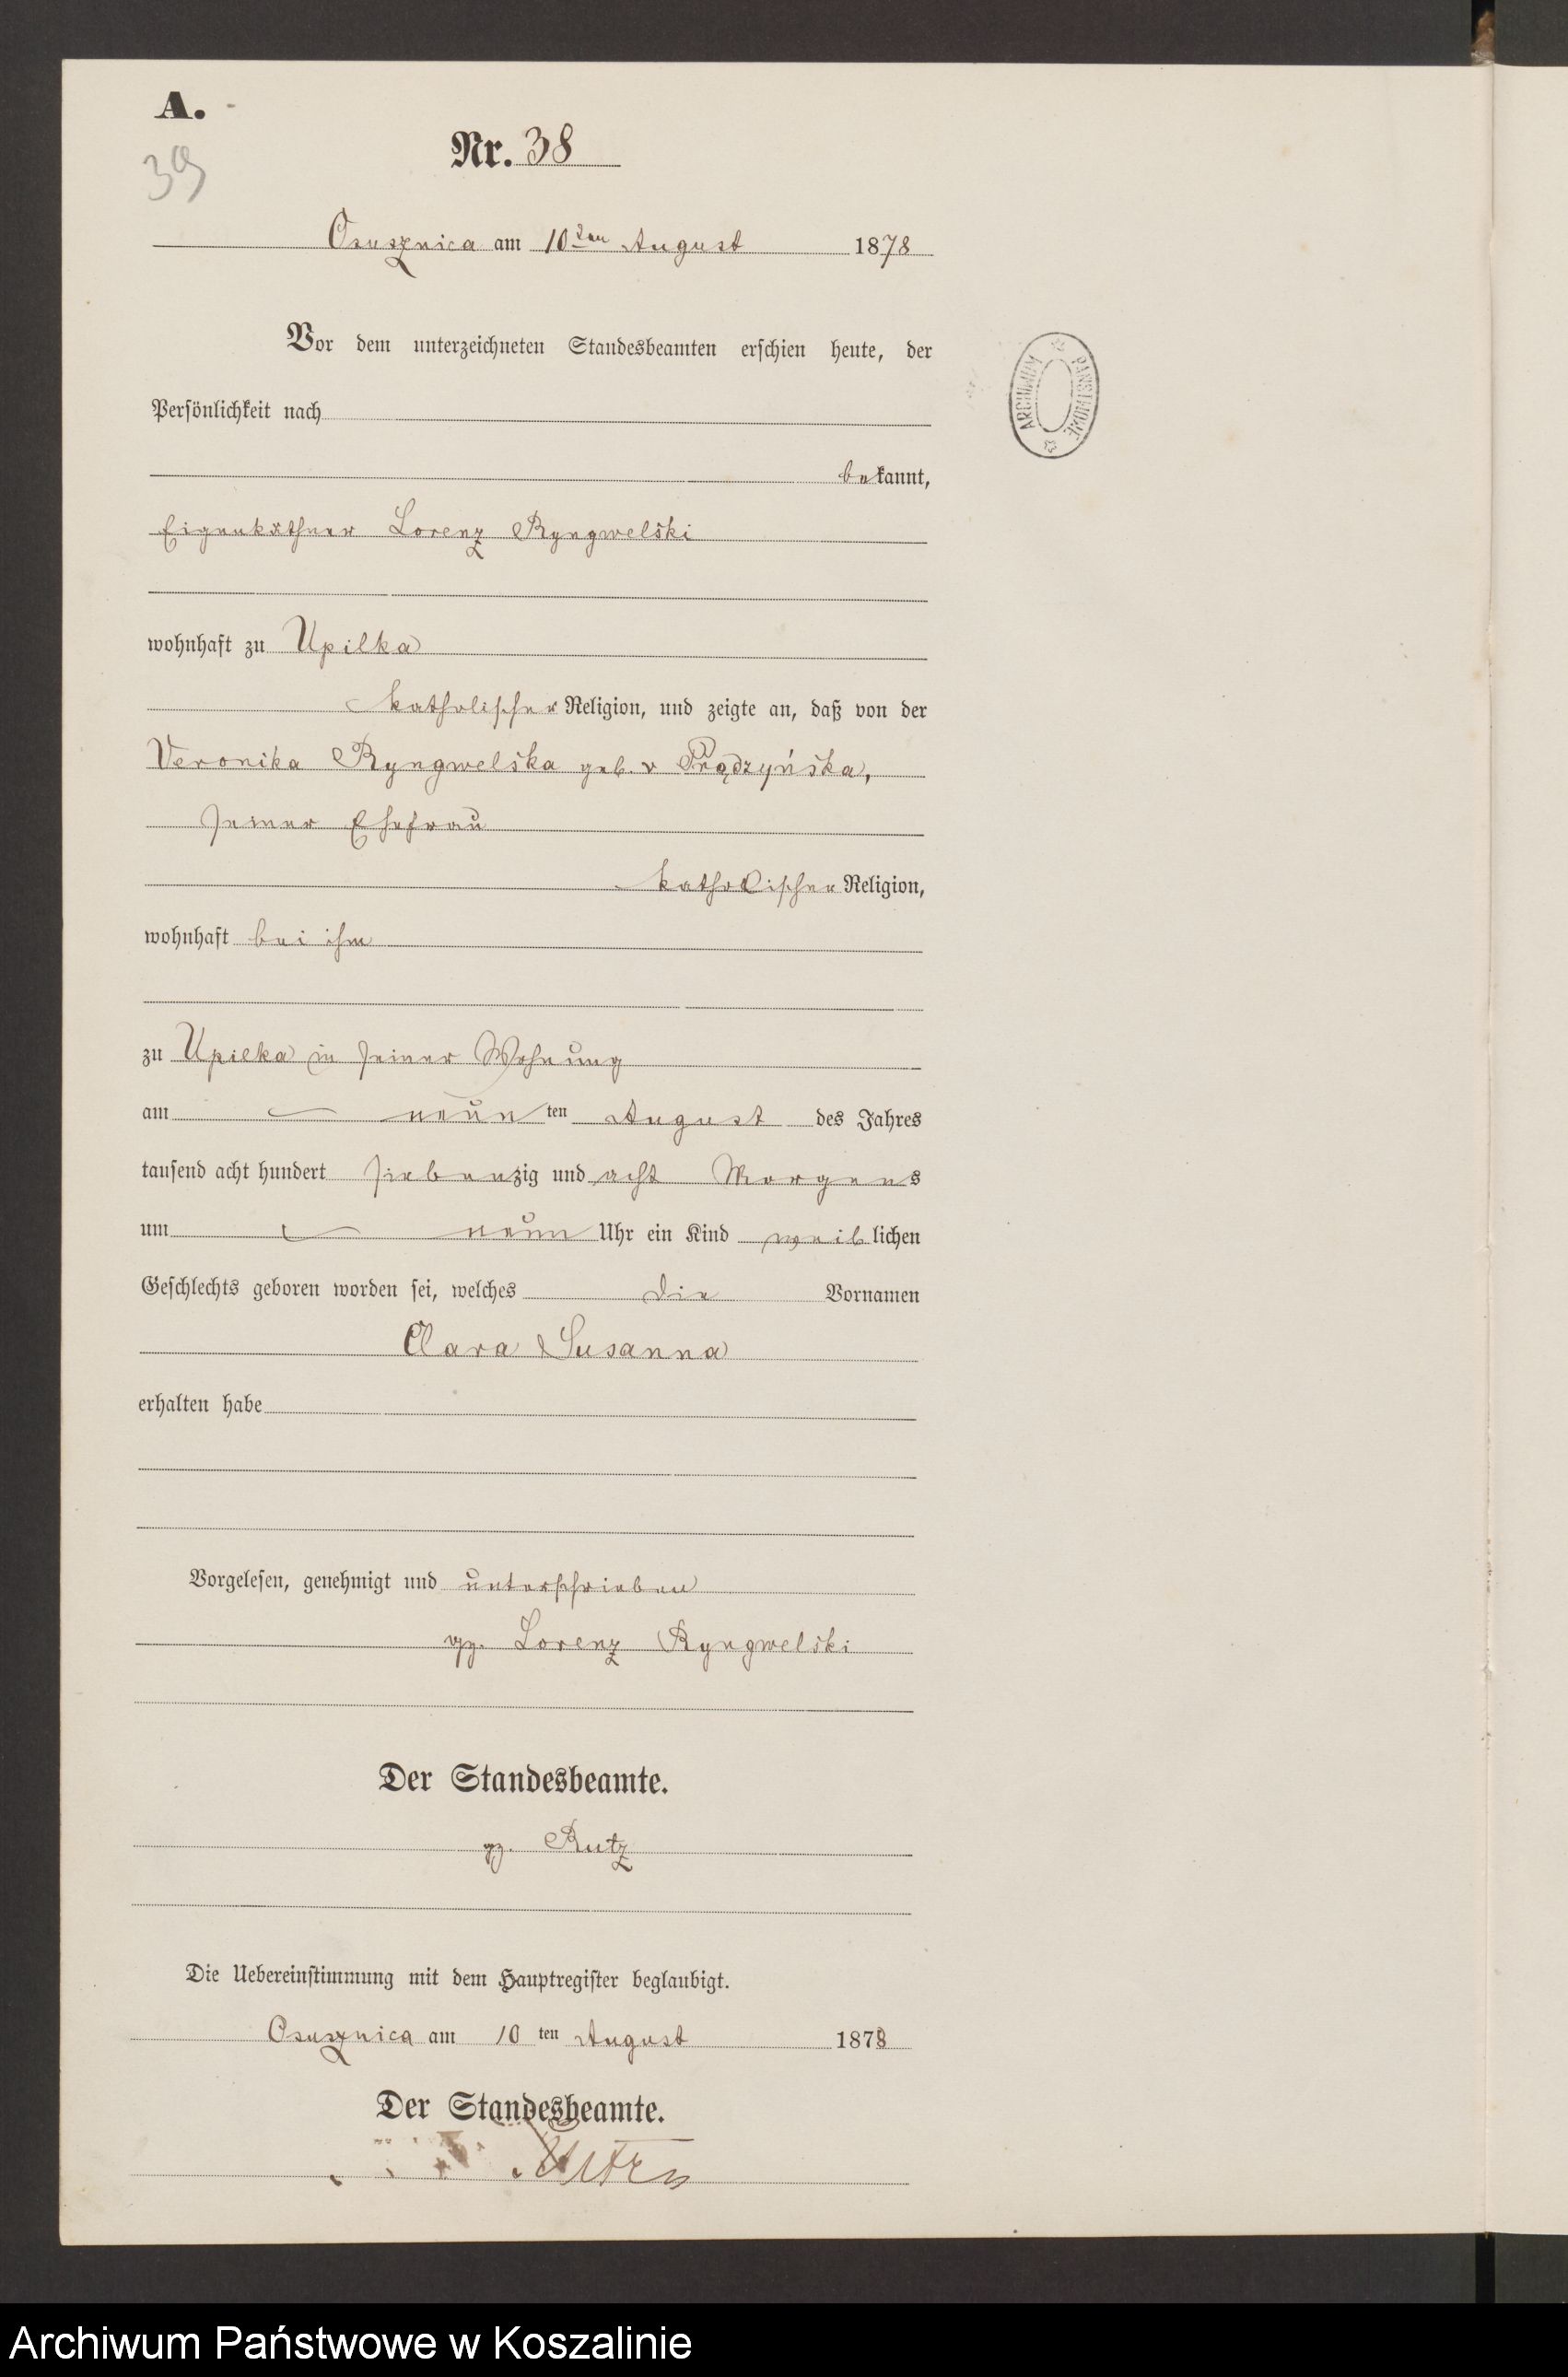 A.
39
Nr. 38
Osusznica am 10ten August 1878
Vor dem unterzeichneten Standesbeamten erschien heute, der
Persönlichkeit nach
bekannt,
Eigenkäthner Lorenz Ryngwelski
wohnhaft zu Upilka
katholischer Religion, und zeigte an, daß von der
Veronika Ryngwelska geb. v Prądzyńska,
seiner Ehefrau
katholischer Religion,
wohnhaft bei ihm
zu Upilka in seiner Wohnung
am neunten August des Jahres
tausend acht hundert siebenzig und acht Morgens
um neun Uhr ein Kind weiblichen
Geschlechts geboren worden sei, welches die Vornamen
Clara Susanna
erhalten habe
Vorgelesen, genehmigt und unterschrieben
gz. Lorenz Ryngwelski
Der Standesbeamte.
gz. Rutz
Die Uebereinstimmung mit dem Hauptregister beglaubigt.
Osusznica am 10ten August 1878
Der Standesbeamte.
Rutz
ARCHIWUM PAŃSTWOWE
Archiwum Państwowe w Koszalinie